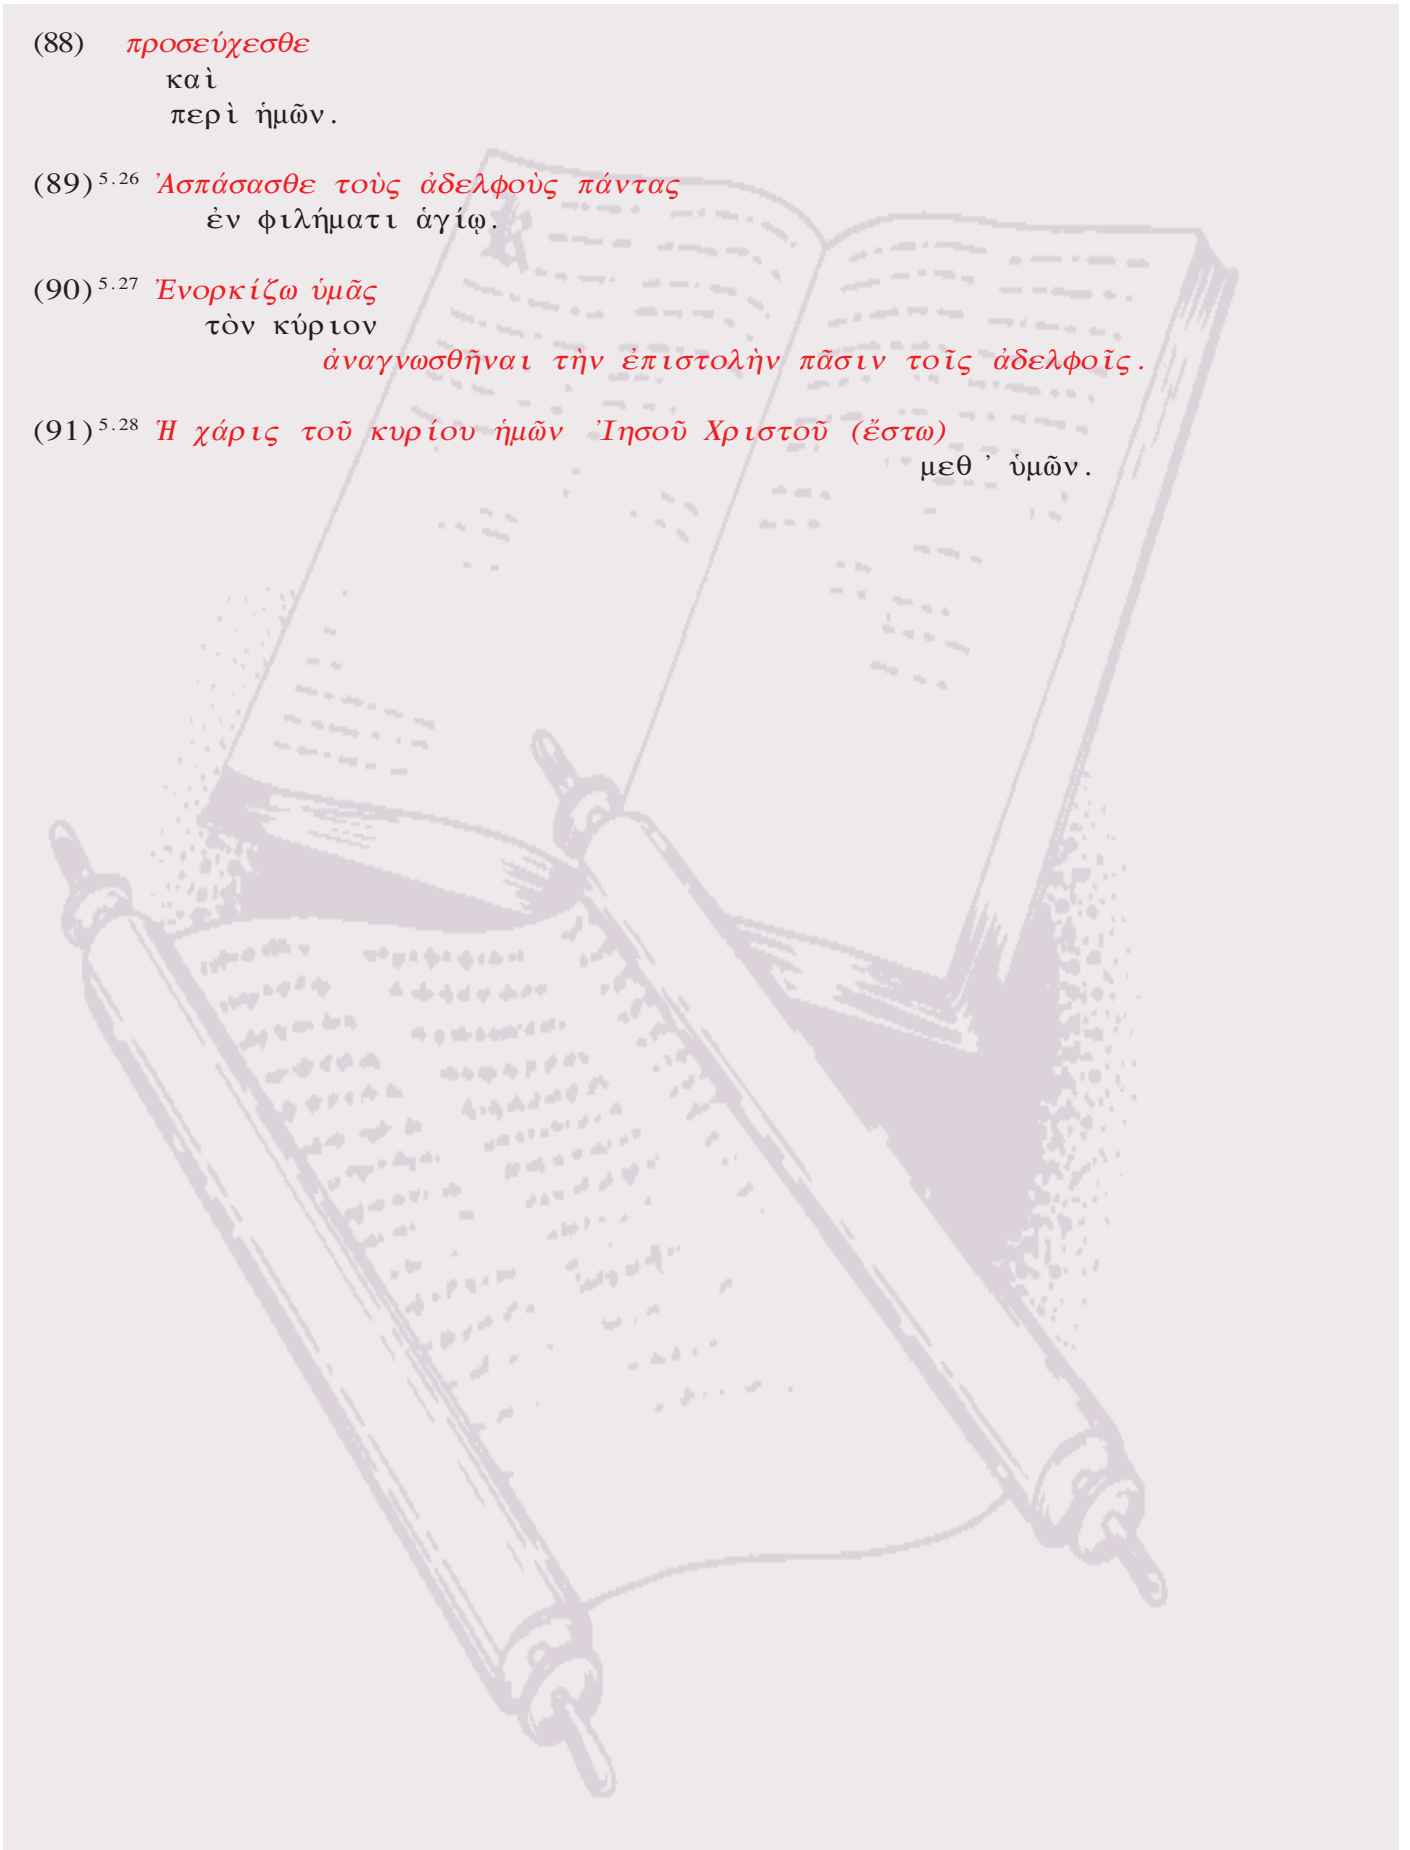 (88) προσεύχεσθε
καὶ
περὶ ἡμῶν.
(89) 5.26 Ἀσπάσασθε τοὺς ἀδελφοὺς πάντας
ἐν φιλήματι ἁγίῳ.
(90) 5.27 Ἐνορκίζω ὑμᾶς
τὸν κύριον
ἀναγνωσθῆναι τὴν ἐπιστολὴν πᾶσιν τοῖς ἀδελφοῖς.
(91) 5.28 Ἡ χάρις τοῦ κυρίου ἡμῶν Ἰησοῦ Χριστοῦ (ἔστω)
μεθ᾽ ὑμῶν.